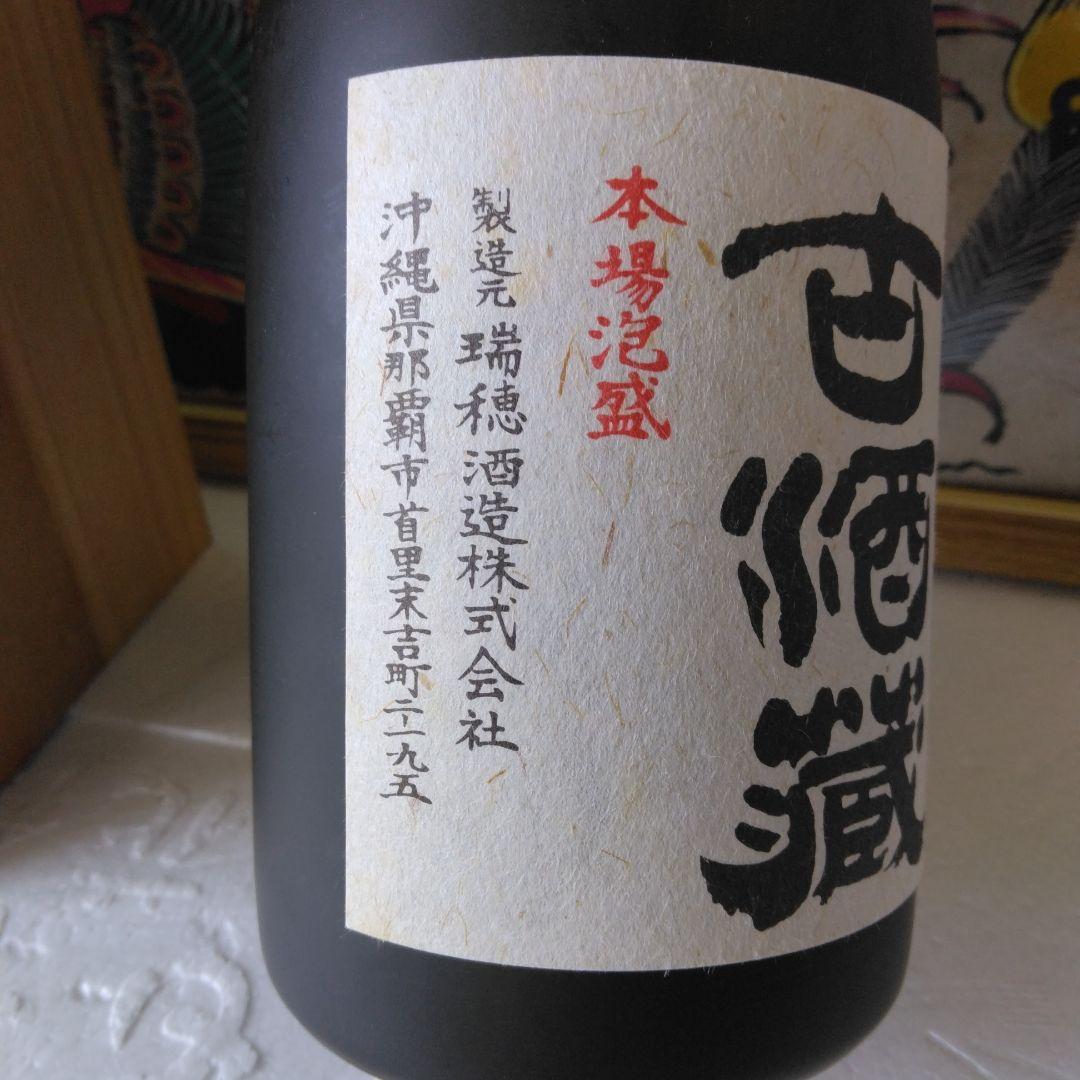 古酒蔵
本場泡盛
製造元 瑞穂酒造株式会社
沖縄県那覇市首里末吉町二ー一九五